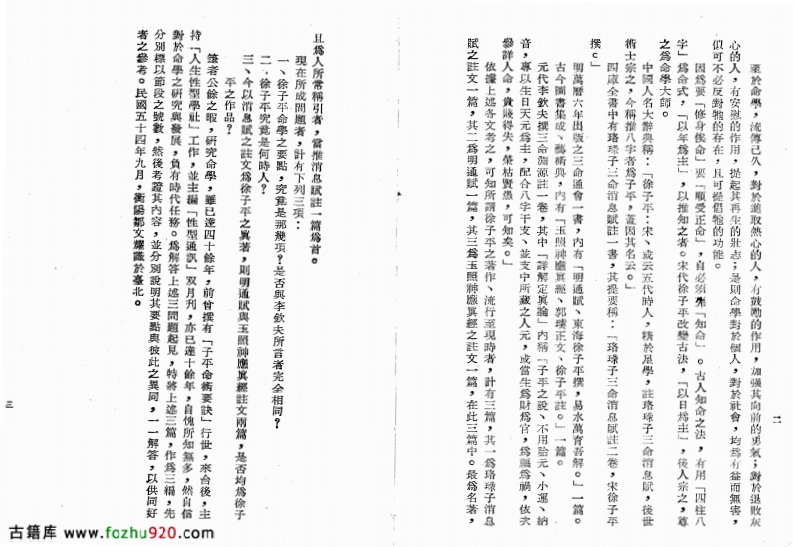 至於命學，流傳已久，對於進取熱心的人，有鼓勵的作用，加強其向前的勇氣；對於退敗灰
心的人，有安慰的作用，提起其再生的壯志；是則命學對於個人，對於社會，均為有益而無害，
似可不必反對牠的存在，且可提倡牠的功能。
因為要「修身俟命」要「順受正命」，自必須先「知命」。古人知命之法，有用「四柱八
字」為命式，「以年為主」，以推知之者。宋代徐子平改變古法，「以日為主」，後人宗之，尊
之為命學大師。
中國人名大辭典稱：「徐子平：宋、或云五代時人，精於星學，註珞琭子三命消息賦，後世
術士宗之，今稱推八字者為子平，蓋因其名云。」
四庫全書中有珞琭子三命消息賦註一書，其提要稱：「珞琭子三命消息賦註二卷，宋徐子平
撰。」
明萬曆六年出版之三命通會一書，內有「明通賦、東海徐子平撰，易水萬育吾解。」一篇。
古今圖書集成、藝術典，內有「玉照神應眞經、郭璞正文、徐子平註。」一篇。
元代李欽夫撰三命淵源註一卷，其中「詳解定眞論」內稱「子平之說、不用胎元、小運、納
音，專以生日天元為主，配合八字干支、並支中所藏之人元，或當生為財為官，為禍為福，依次
參詳人命，貴賤得失，榮枯賢愚，可知矣。」
依據上述各文考之，可知所謂徐子平之著作、流行至現時者，計有三篇，其一為珞琭子消息
賦之註文一篇，其二為明通賦一篇，其三為玉照神應眞經之註文一篇，在此三篇中。最為名著，
二
且為人所常稱引者，當推消息賦註一篇為首。
現在所成問題者，計有下列三項：
一、徐子平命學之要點，究竟是那幾項？是否與李欽夫所言者完全相同？
二、徐子平究竟是何時人？
三、今以消息賦之註文為徐子平之眞著，則明通賦與玉照神應眞經註文兩篇，是否均為徐子
平之作品？
筆者公餘之暇，研究命學，雖已達四十餘年，前曾撰有「子平命術要訣」行世，來台後，主
持「人生性型學社」工作，並主編「性型通訊」双月刊，亦已達十餘年，自愧所知無多，然自信
對於命學之研究與發展，負有時代任務。為解答上述三問題起見，特將上述三篇，作為三編，先
分別標以節段之號數，然後考證其內容，並分別說明其要點與彼此之異同，一一解答，以供同好
者之參考。民國五十四年九月，衡陽鄒文耀識於臺北。
三
古籍库 www.fozhu920.com